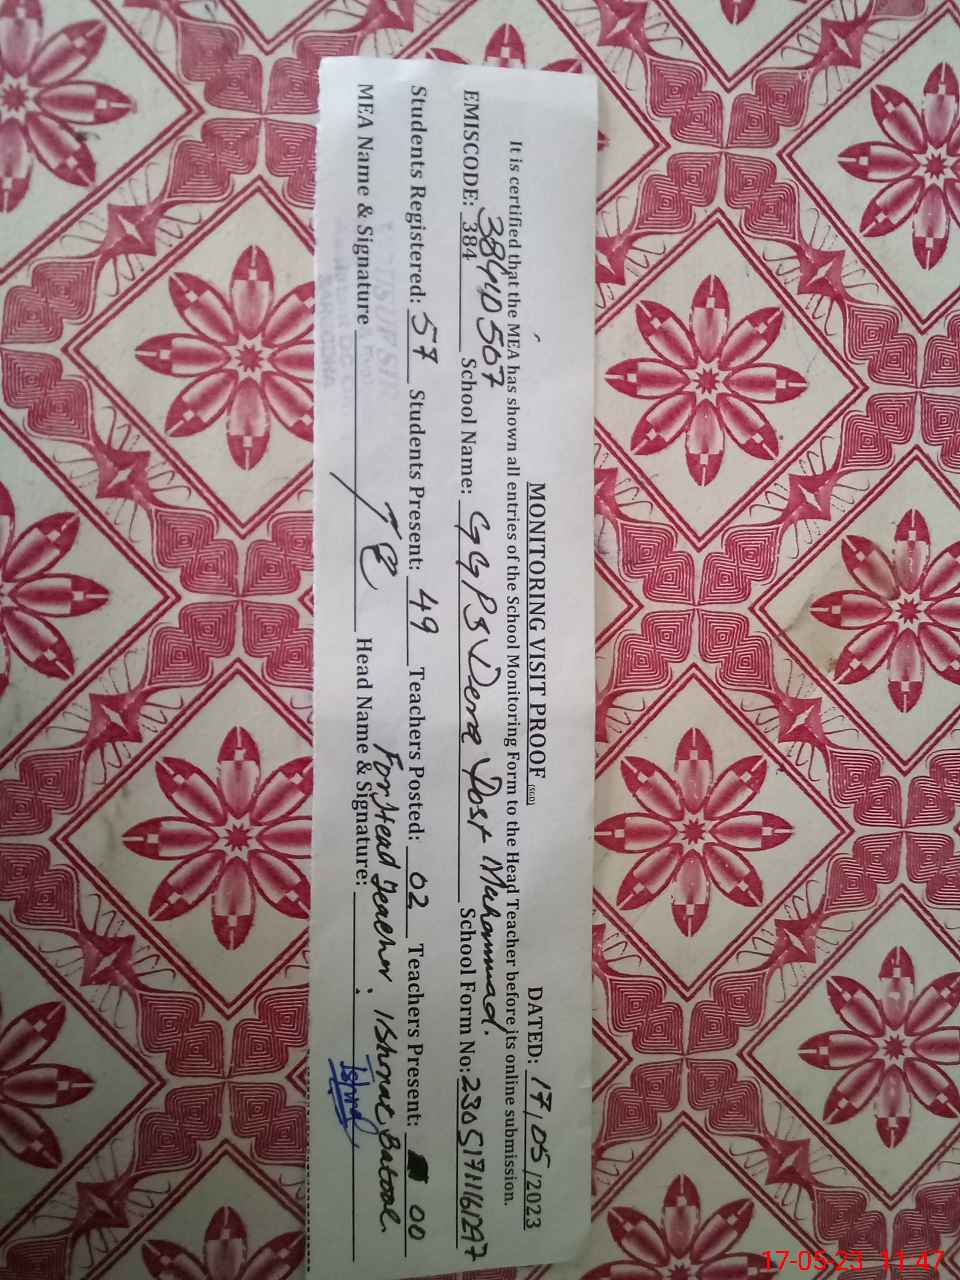 MONITORING VISIT PROOF (SGD) DATED: 17/05/2023
It is certified that the MEA has shown all entries of the School Monitoring Form to the Head Teacher before its online submission.
38440507
EMISCODE: 384 School Name: GGPS Dera Dost Muhammad. School Form No: 230517116247
Students Registered: 57 Students Present: 49 Teachers Posted: 02 Teachers Present: 00
For Head Teacher: Ishrat Batool.
MEA Name & Signature Head Name & Signature:
17-05-23 11:47